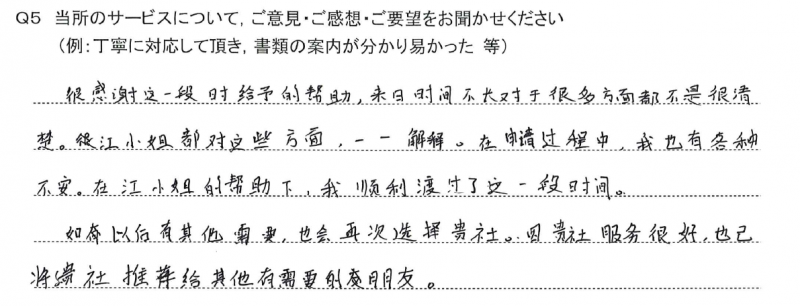 Q5 当所のサービスについて, ご意見・ご感想・ご要望をお聞かせください
（例：丁寧に対応して頂き, 書類の案内が分かり易かった 等）
很感谢这一段时给予的帮助，来日时间不长对于很多方面都不是很清
楚。经江小姐都对这些方面，一一解释。在申请过程中，我也有各种
不安。在江小姐的帮助下，我顺利渡过了这一段时间。
如有以后有其他需要，也会再次选择贵社。因贵社服务很好，也已
将贵社推荐给其他有需要的朋友。